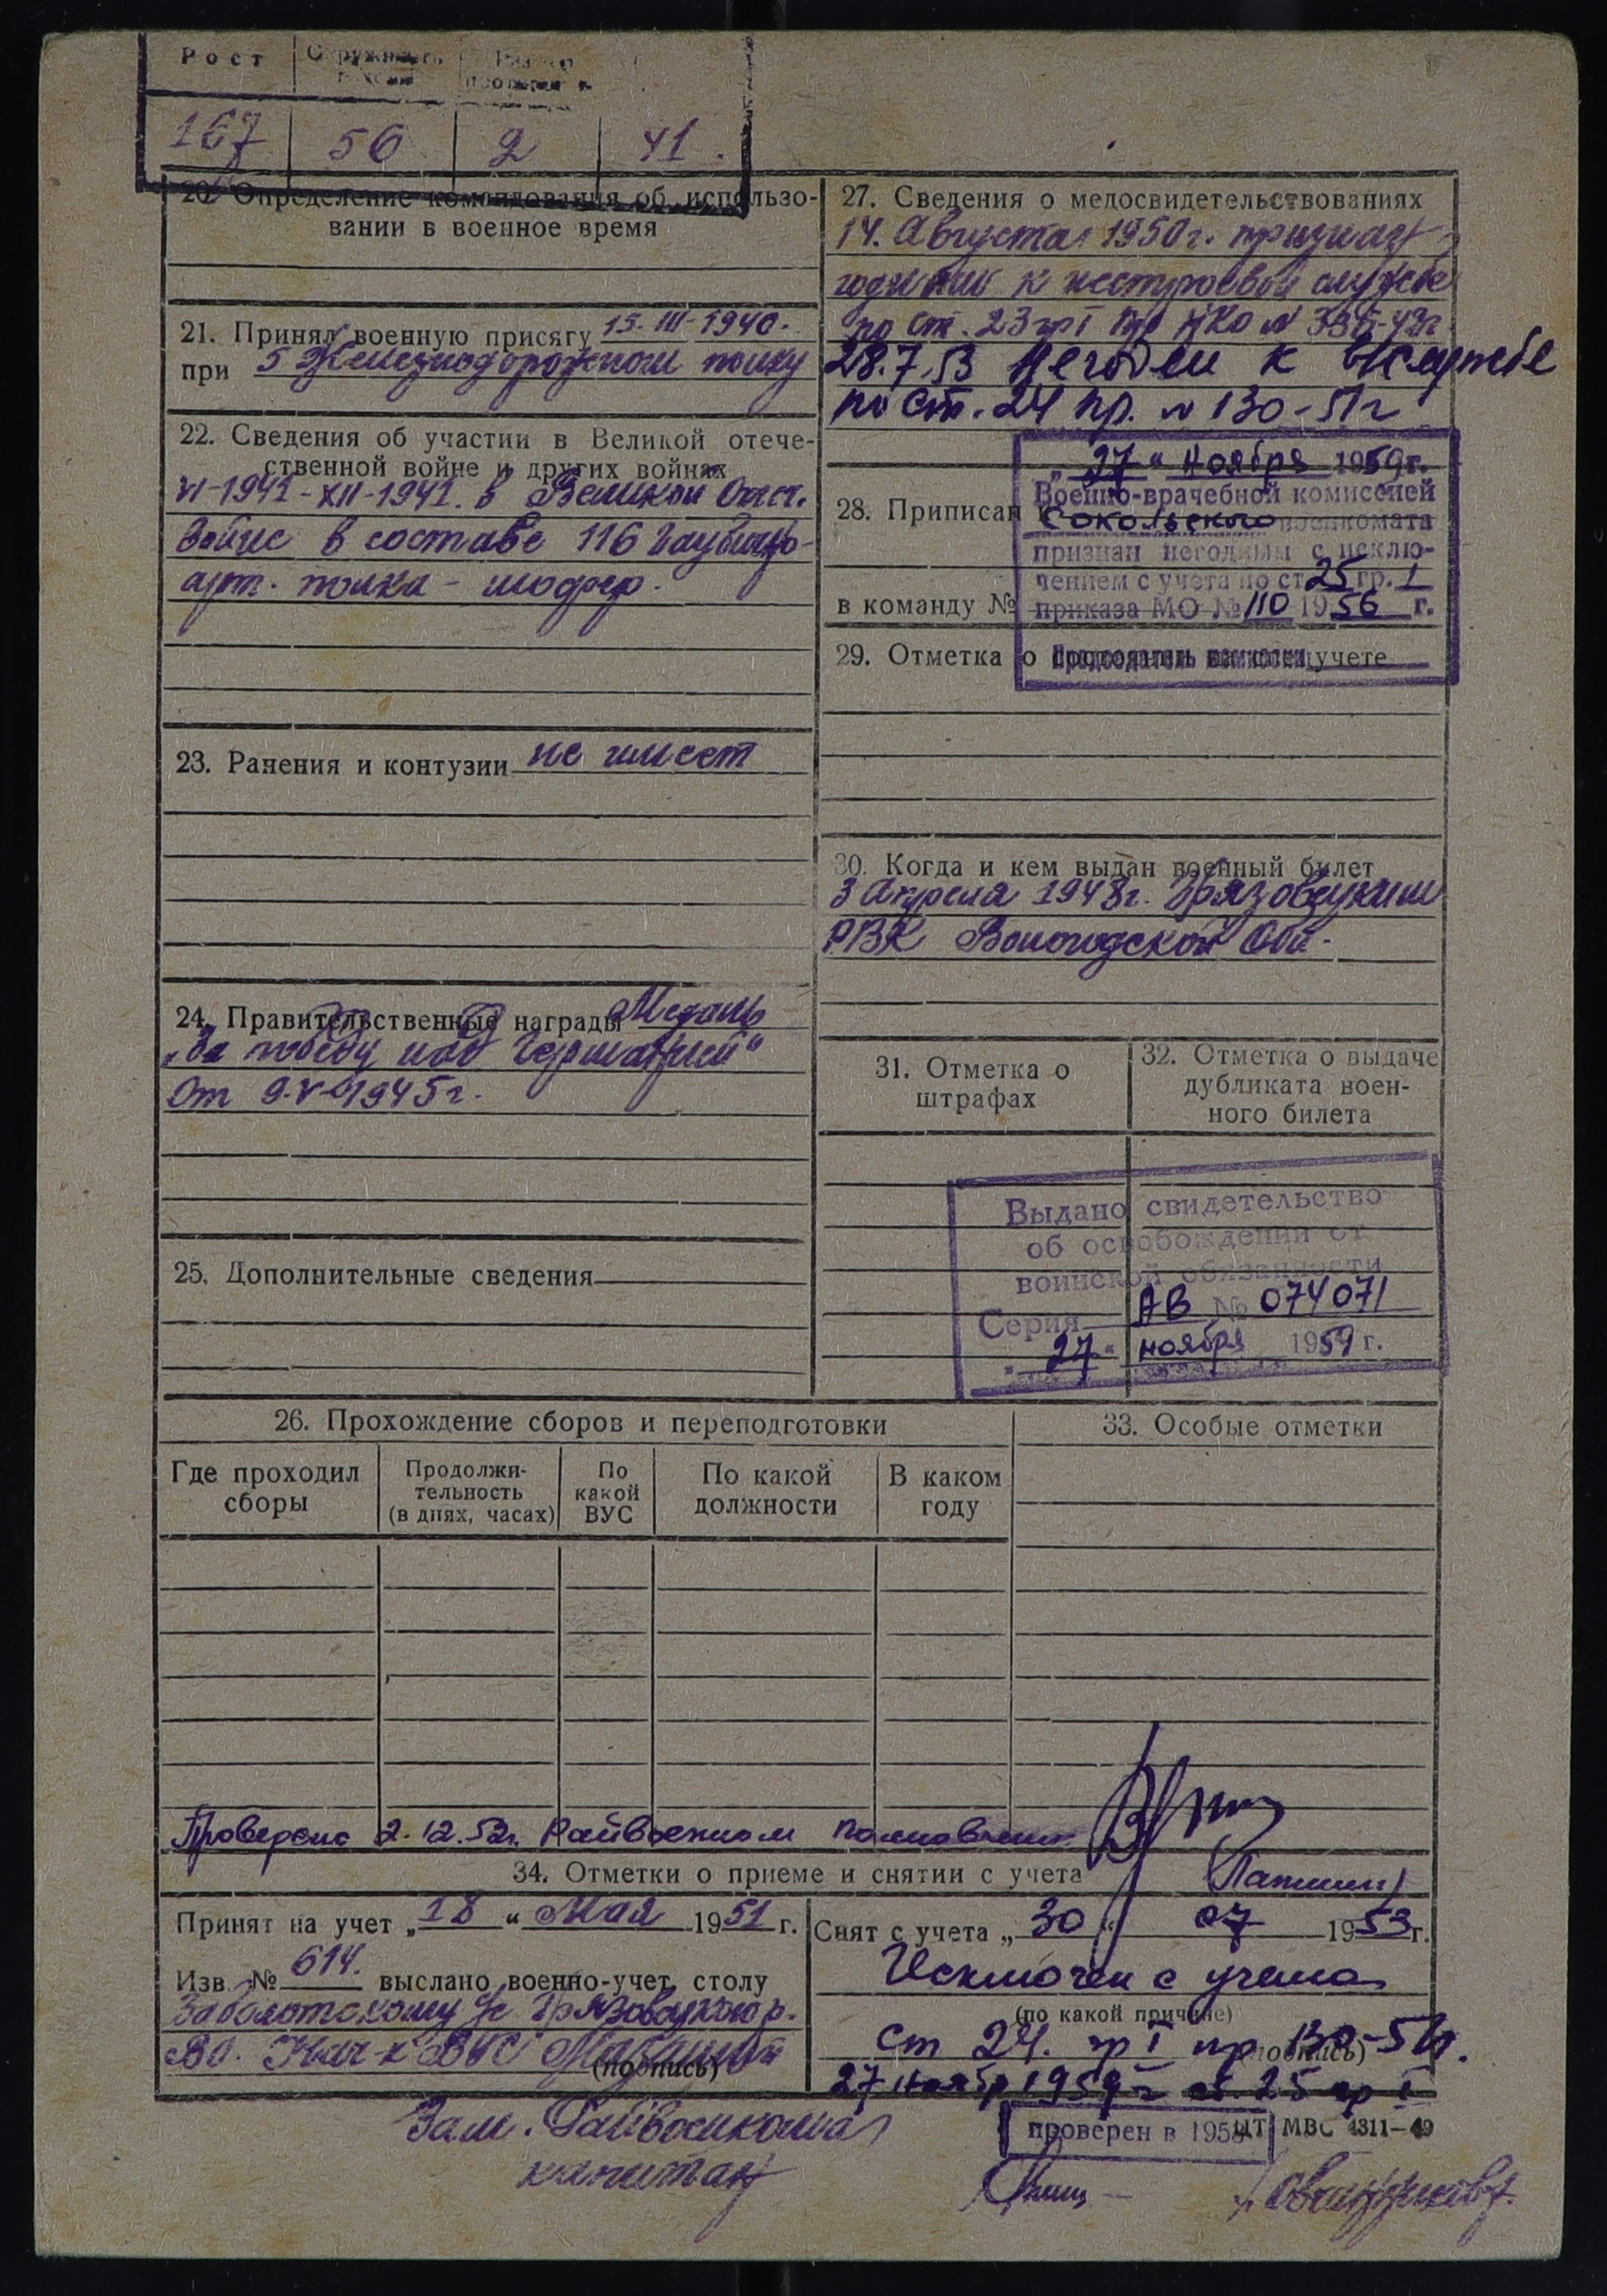 Рост Окружность головы Размер противогаза
167 56 2 41.
20. Определение командования об использо-
вании в военное время
21. Принял военную присягу 15-III-1940.
при 5 Железнодорожном полку
22. Сведения об участии в Великой отече-
ственной войне и других войнах
VI-1941-XII-1941. в Великой Отеч.
войне в составе 116 гаубично-
арт. полка - шофер.
23. Ранения и контузии не имеет
24. Правительственные награды Медаль
„За победу над Германией“
от 9-V-1945г.
25. Дополнительные сведения
27. Сведения о медосвидетельствованиях
14. Августа 1950г. признан
годным к нестроевой службе
по ст. 23 гр I пр НКО №
28.7.53 Негоден к в/службе
по ст. 24 пр. № 130-51г
„27“ Ноября 1959г.
Военно-врачебной комиссией
Сокольского военкомата
признан негодным с исклю-
чением с учета по ст 25 гр. I
приказа МО № 110 1956 г.
Председатель комиссии
28. Приписан к
в команду №
29. Отметка о состоянии на спецучете
30. Когда и кем выдан военный билет
3 Апреля 1948г. Грязовецким
РВК Вологодской Обл.
31. Отметка о
штрафах
32. Отметка о выдаче
дубликата воен-
ного билета
Выдано свидетельство
об освобождении от
воинской обязанности
Серия АВ № 074071
„27“ ноября 1959 г.
26. Прохождение сборов и переподготовки
Где проходил
сборы
Продолжи-
тельность
(в днях, часах)
По
какой
ВУС
По какой
должности
В каком
году
33. Особые отметки
Проверено 2.12.52г. Райвоенком Полковник
34. Отметки о приеме и снятии с учета
Принят на учет „18“ Мая 1951 г.
Изв. № 614. выслано военно-учет. столу
Заболотскому с/с Грязовецкого р-
ВО. Нач-к ВУС
(подпись)
Зам. Райвоенкома
капитан
Снят с учета „30“ 07 1953г.
Исключен с учета
(по какой причине)
ст 24. гр I пр 130-51г.
(подпись)
27 Ноябр 1959 г ст. 25 гр I
проверен в 1958
ЦТ МВС 4311-49